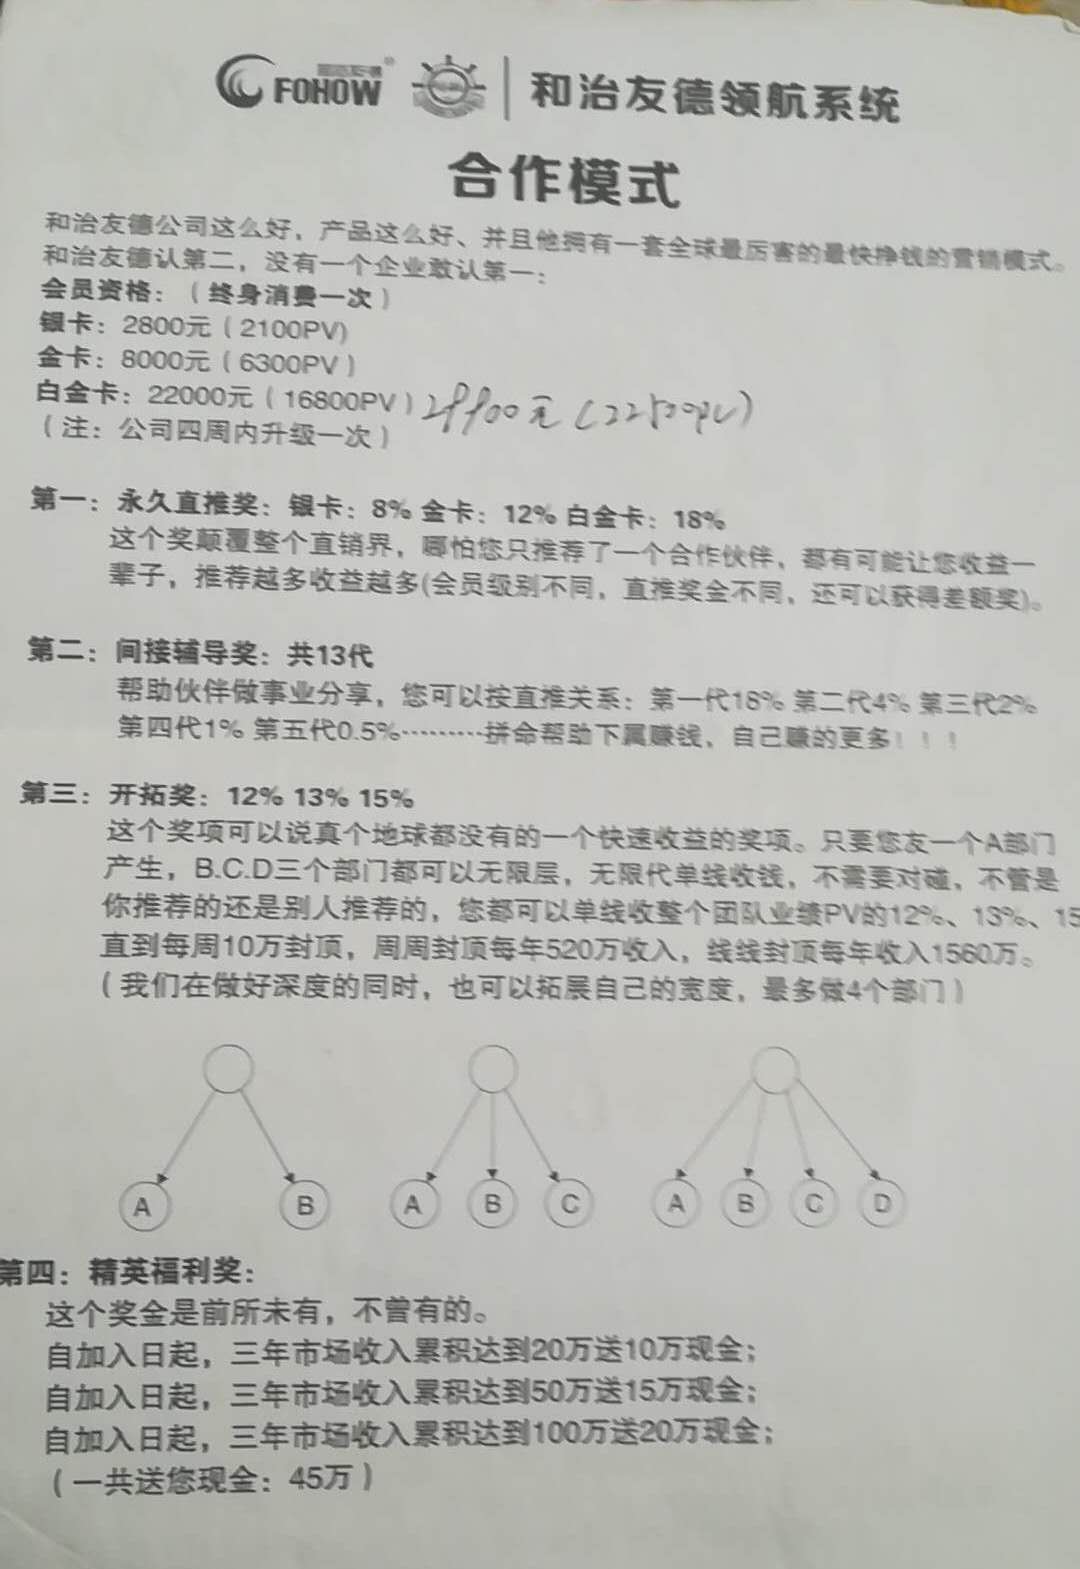 FOHOW® 和治友德领航系统
合作模式
和治友德公司这么好，产品这么好、并且他拥有一套全球最厉害的最快挣钱的营销模式。
和治友德认第二，没有一个企业敢认第一：
会员资格：（终身消费一次）
银卡：2800元（2100PV)
金卡：8000元（6300PV）
白金卡：22000元（16800PV）29900元（22500PV）
（注：公司四周内升级一次）
第一：永久直推奖：银卡：8% 金卡：12% 白金卡：18%
这个奖颠覆整个直销界，哪怕您只推荐了一个合作伙伴，都有可能让您收益一
辈子，推荐越多收益越多(会员级别不同，直推奖金不同，还可以获得差额奖)。
第二：间接辅导奖：共13代
帮助伙伴做事业分享，您可以按直推关系：第一代18% 第二代4% 第三代2%
第四代1% 第五代0.5%………拼命帮助下属赚钱，自己赚的更多！！！
第三：开拓奖：12% 13% 15%
这个奖项可以说真个地球都没有的一个快速收益的奖项。只要您友一个A部门
产生，B.C.D三个部门都可以无限层，无限代单线收钱，不需要对碰，不管是
你推荐的还是别人推荐的，您都可以单线收整个团队业绩PV的12%、13%、15
直到每周10万封顶，周周封顶每年520万收入，线线封顶每年收入1560万。
（我们在做好深度的同时，也可以拓展自己的宽度，最多做4个部门）
A B A B C A B C D
第四：精英福利奖：
这个奖金是前所未有，不曾有的。
自加入日起，三年市场收入累积达到20万送10万现金；
自加入日起，三年市场收入累积达到50万送15万现金；
自加入日起，三年市场收入累积达到100万送20万现金；
（一共送您现金：45万）